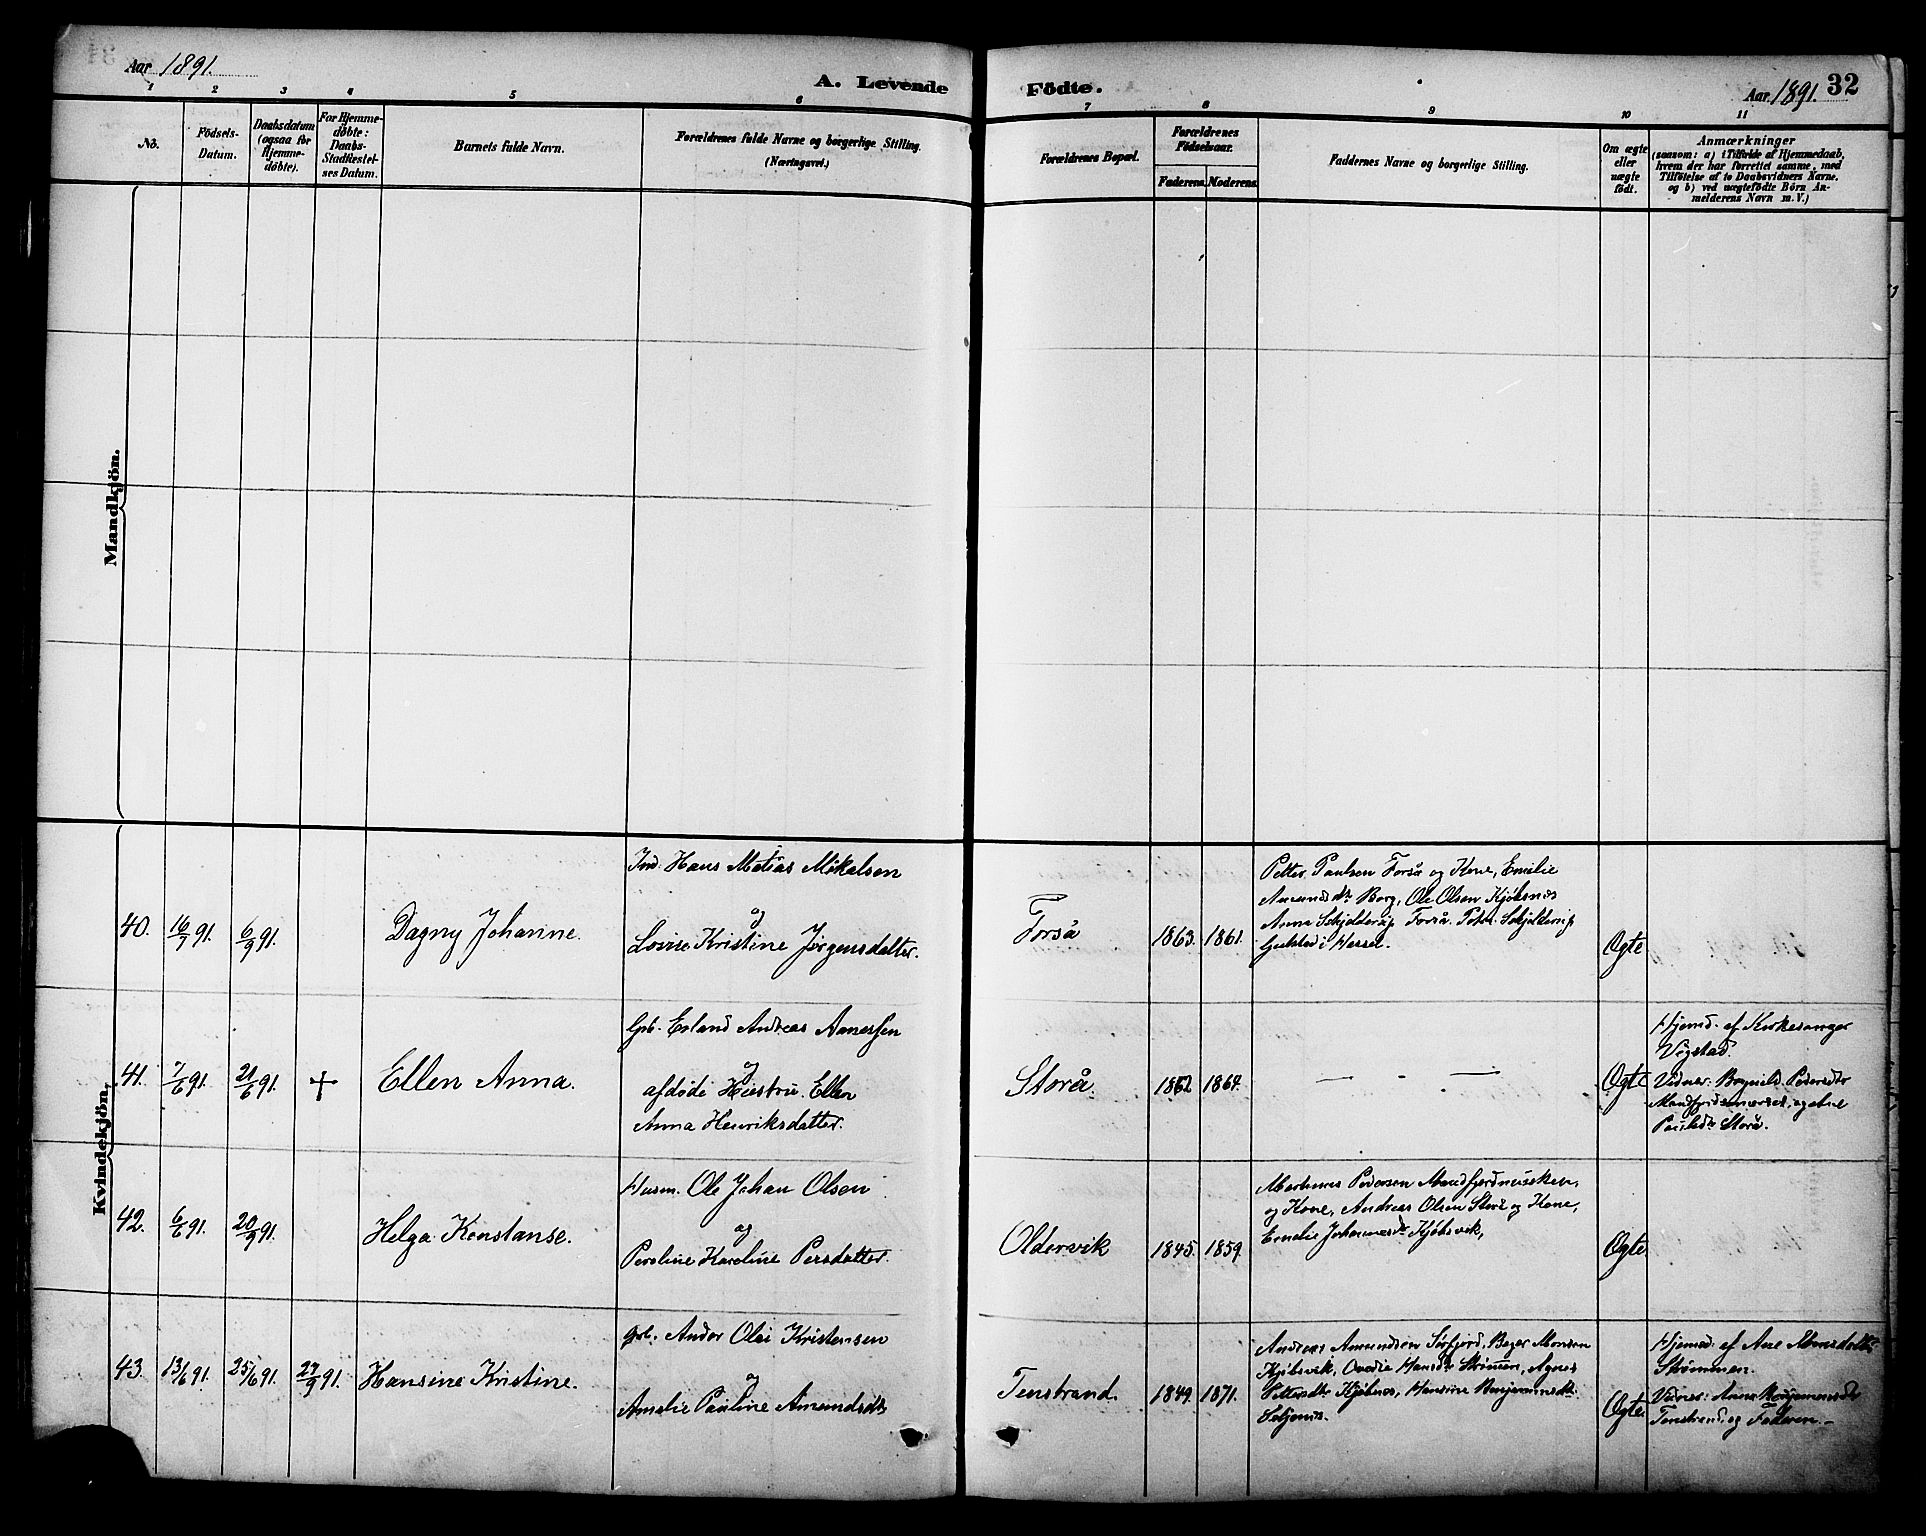 Aar 1891.
A. Levende
Födte.
Aar 1891. 32
1 2 3 4 5 6 7 8 9 10 11
No.
Födsels-
Datum.
Daabsdatum
(ogsaa for
Hjemme-
døbte).
For Hjemme-
døbte:
Daabs-
Stadfæstel-
ses Datum.
Barnets fulde Navn.
Forældrenes fulde Navne og borgerlige Stilling.
(Næringsvei.)
Forældrenes Bopæl.
Forældrenes
Födselsaar.
Faderens. Moderens.
Faddernes Navne og borgerlige Stilling.
Om ægte
eller
uægte
født.
Anmærkninger
(saasom: a) i Tilfælde af Hjemmedaab,
hvem der har forrettet samme, med
Tilføielse af to Daabsvidners Navne,
og b) ved uægtefødte Börn An-
melderens Navn m. V.)
Mandkjön.
Kvindekjön.
40. 16/7 91. 6/9 91. Dagny Johanne.
Ind. Hans Matias Mikalsen
og
Lovise Kristine Jörgensdatter.
Forså
1863. 1861.
Petter Paulsen Forså og Kone, Emilie
Amundsdtr Borg, Ole Olsen Kjöbsnes
Anna Schjelderup Forså. Peter Schjelderup
i Hassel.
Ogte
41. 7/6 91. 21/6 91. + Ellen Anna.
Gpb. Erland Andreas Anessen
og
afdöde Hustru Ellen
Anna Henriksdatter.
Storå
1862 1864.
— - —
Ogte
Hjemd. af Kirkesanger
Vigstad.
Vidner: Pedersdtr
Storå.
42. 6/6 91. 20/9 91. Helga Konstanse.
Husm. Ole Johan Olsen
og
Peroline Karoline Persdatter.
Oldervik
1845. 1859.
Pedersen
og Kone, Andreas Olsen Storå og Kone,
Emelie Johannesdtr Kjöbsvik,
Ogte
43. 13/6 91. 25/6 91. 27/9 91. Hansine Kristine.
Gpb. Andor Olei Kristensen
og
Amalie Pauline Amundsdtr
Tenstrand.
1849. 1871.
Andreas Amundsen Sörfjord, Monsen
Kjöbsvik, Ovedie Hansdtr Strömen, Agnes
Pettersdtr Kjöbsnes, Hansine Benjaminsdtr
Ogte
Hjemd. af Ane Monsdatter
Strömmen.
Vidner: Anna
Tenstrand, og Faderen. -